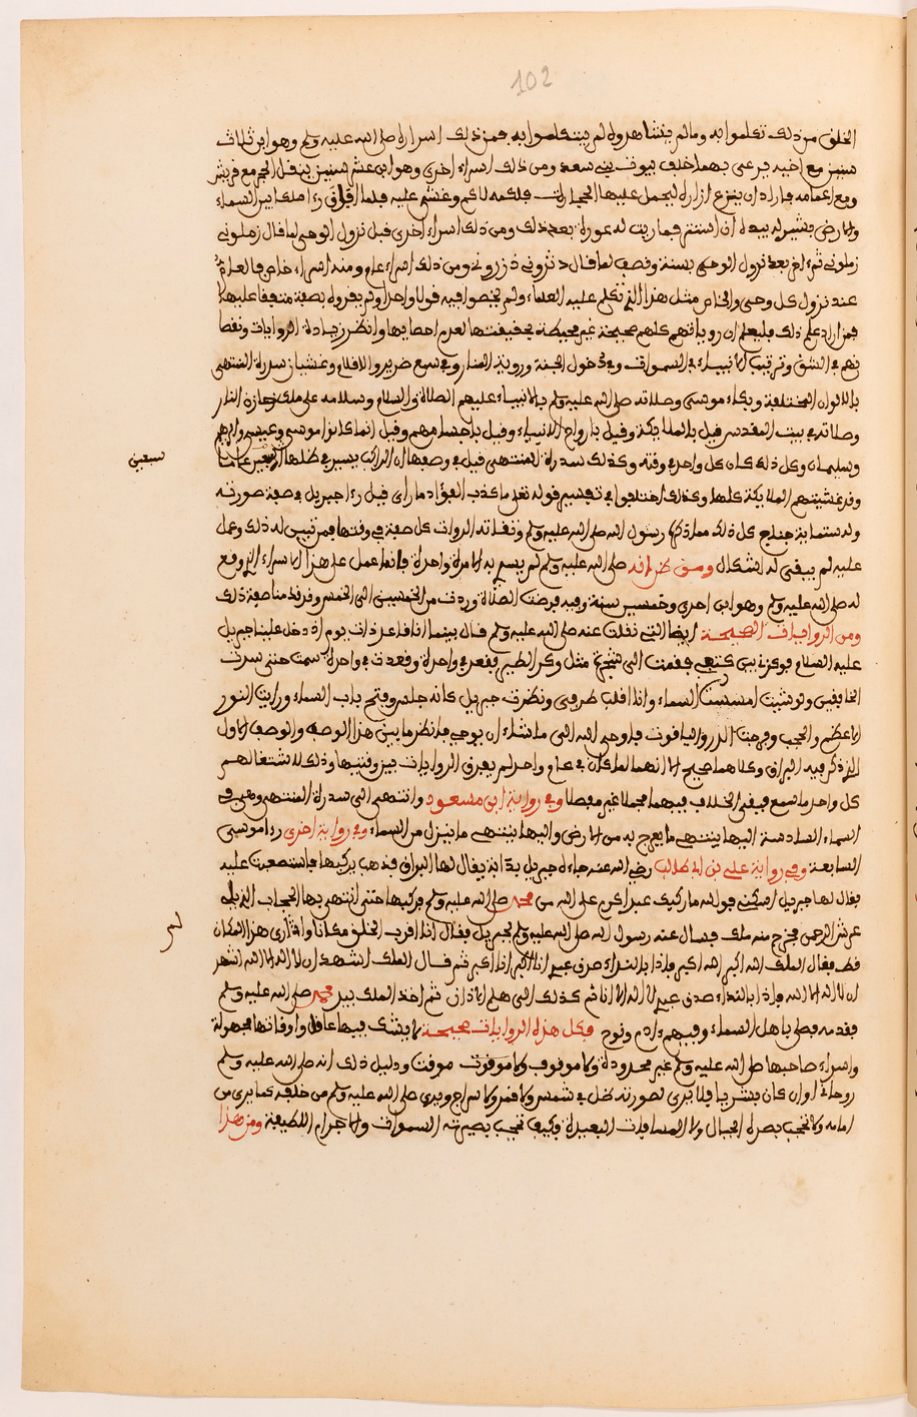 102
الخلق من ذلك تكلموا به ومالم يشاهدوه لم يتكلموا به فمن ذلك اسراؤه صلى الله عليه وسلم وهو ابن ثلاث
سنين مع اخيه يرعى بهما خلف بيوت بني سعد ومن ذلك اسراء اخرى وهو ابن عشر سنين ينقل الحجر مع قريش
ومع اعمامه فاراد ان ينزع ازاره ليجعل عليها الحجارة فلكمه لاكم وغشي عليه فلما افاق راء ملكا بين السماء
والارض يشير له بيده ان استتر فما ريت له عورة بعد ذلك ومن ذلك اسراء اخرى قبل نزول الوحي لما قال زملوني
زملوني ثم اخر بعد نزول الوحي بسنة ونصف لما قال دثروني دثروني ومن ذلك اسراء عام ومنه اسراء خاص فالعام
عند نزول كل وحي والخاص مثل هذا الذي تكلم عليه العلماء ولم يخصوا فيه قولا واحدا ولم يقروه بصفة متفقا عليها
فمن اراد علم ذلك فليعلم ان رواياتهم كلهم صحيحة غير محيطة بحقيقتها لعدم احصايها وانظر زيادة الروايات ونقصا
نهم في الشق وترتيب الانبياء في السموات وفي دخول الجنة وروية النار وفي سمع صرير الاقلام وغشيان سدرة المنتهى
بالالوان المختلفة وبكاء موسى وصلاته صلى الله عليه وسلم بالانبياء عليهم الصلاة والسلام وسلامه على ملك خازن النار
وصلاته في بيت المقدس قيل بالملايكة وقيل بارواح الانبياء وقيل باجسامهم وقيل انما كانوا موسى وعيسى وابرهيم
وسليمان وكل ذلك كان كل واحد في وقته وكذلك سدرة المنتهى قيل في وصفها ان الراكب يسير في ظلها اربعين عاما
سبعين
وقد غشيتهم الملايكة كلها وكذلك اختلفوا في تفسير قوله تعلى ما كذب الفؤاد ما راى قيل راء جبريل في صفة صورته
وله ستماية جناح كل ذلك مما ذكره رسول الله صلى الله عليه وسلم ونقلته الروات كل صفة في وقتها فمن تبين له ذلك وعمل
عليه لم يبقى له اشكال ومن ظن انه صلى الله عليه وسلم لم يسر به الا مرة واحدة فانما عمل على هذا الاسراء الذي وقع
له صلى الله عليه وسلم وهو ابن احدى وخمسين سنة وفيه فرضت الصلاة وردت من الخمسين الى الخمس وقد قدمنا صفة ذلك
ومن الروايات الصحيحة ايضا التي نقلت عنه صلى الله عليه وسلم قال بينما انا قاعد ذات يوم اذ دخل علينا جبريل
عليه السلام فوكز في بين كتفي فقمت الى شجرة مثل وكر الطير فقعد في واحدة وقعدت في واحدة سمت حتى سدت
الخافقين ولو شيت امسست السماء وانا اقلب طرفي ونظرت جبريل كانه جلس وفتح باب السماء ورايت النور
الاعظم والحجب وفرجت الدر والياقوت فاوحى الله الى ما شاء ان يوحي فانظر ما بين هذا الوصف والوصف الاول
الذي ذكر فيه البراق وكلاهما صحيح الا انهما لما كان في عام واحد لم يفرق الروايات بين وقتيها وذلك لاشتغالهم
كل واحد ما سمع فبقي الخلاف فيهما مجملا غير مفصلا وفي رواية ابن مسعود وانتهى الى سدرة المنتهى وهي في
السماء السادسة اليها ينتهي ما يعرج به من الارض واليها ينتهي ما ينزل من السماء وفي رواية اخرى راء موسى
السابعة وفي رواية علي بن ابي طالب رضي الله عنه جاءه جبريل بدابة يقال لها البراق فذهب يركبها فاستصعبت عليه
فقال لها جبريل اسكني فوالله ما ركبك عبد اكرم على الله من محمد صلى الله عليه وسلم فركبها حتى انتهى بها الحجاب الذي يلي
عرش الرحمن فخرج منه ملك فسال عنه رسول الله صلى الله عليه وسلم لجبريل فقال انا اقرب الخلق مكانا وما اراى هذا المكان
قط فقال الملك الله اكبر الله اكبر فاذا بالنداء صدق عبدي انا اكبر انا اكبر ثم قال الملك اشهد ان لا اله الا الله اشهد
ان لا اله الا الله فاذا بالنداء صدق عبدي لا اله الا انا ثم كذلك الى هلم الاذان ثم اخذ الملك بيد محمد صلى الله عليه وسلم
فقدمه فصلى باهل السماء وفيهم ءادم ونوح فكل هذه الروايات صحيحة لا يشك فيها عاقل واوقاتها مجهولة
واسراء صاحبها صلى الله عليه وسلم غير محدودة ولا موقوف ولا موقوت موقت ودليل ذلك انه صلى الله عليه وسلم
روحاني وان كان بشريا فلا يرى لصورته ظل في شمس ولا قمر ولا سراج ويرى صلى الله عليه وسلم من خلفه كما يرى من
امامه ولا تحجب بصره الجبال ولا المسافات البعيدة وكيف تحجب بصيرته السموات والاجرام اللطيفة ومن هذا